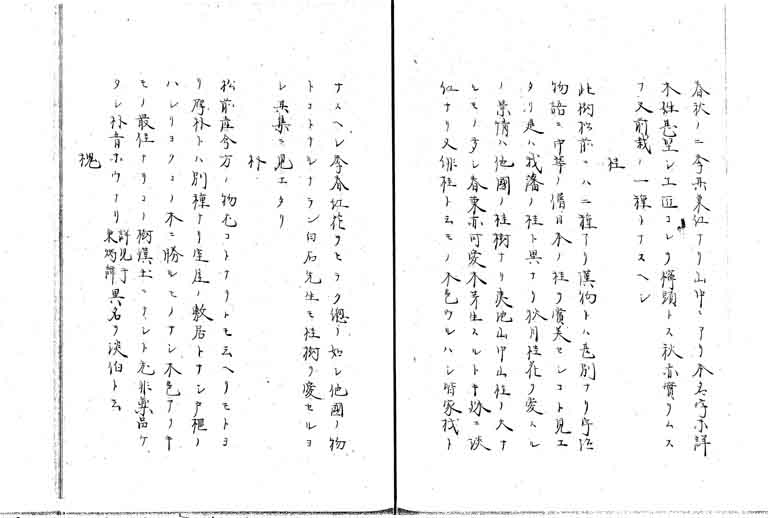 春秋ノ二季其葉紅ナリ山中ニアリ本名字不詳
木性甚堅シ工匠コレヲ 頭トス秋赤實ヲムス
フ又前栽ノ一種トナスヘシ
桂
此樹松前ニハ二種アリ漢物トハ甚別ナリ宇治
物語ニ中華ノ僧日本ノ桂ヲ賞美セシコト見エ
タリ是ハ我藩ノ桂ト異ナリ秋月桂花ヲ愛スル
ノ景情ハ他國ノ桂樹ナリ夷地山中山桂ノ大ナ
ルモノ多シ春葉赤可愛不芽生スルトキ
紅ナリ又緋桂ト云モノ木色ウルハシ皆家材ト
ナスヘシ季春紅花ヲヒラク ノ如シ他國ノ物
トコトナルナラン白石先生モ桂樹ヲ愛セルヨ
シ其集ニ見エタリ
朴
松前産合方ノ物尤コトナリトモ云ヘリモトヨ
リ厚朴トハ別種ナリ 敷居トナシ戸框ノ
ハシリヨクコノ木ニ勝ルモノナシ木色アヲキ
モノ最佳ナリコノ樹漢土ニアレト尤非藥品ケ
タシ朴音ホウナリ 詳見于東 異名ヲ淡伯ト云
槐